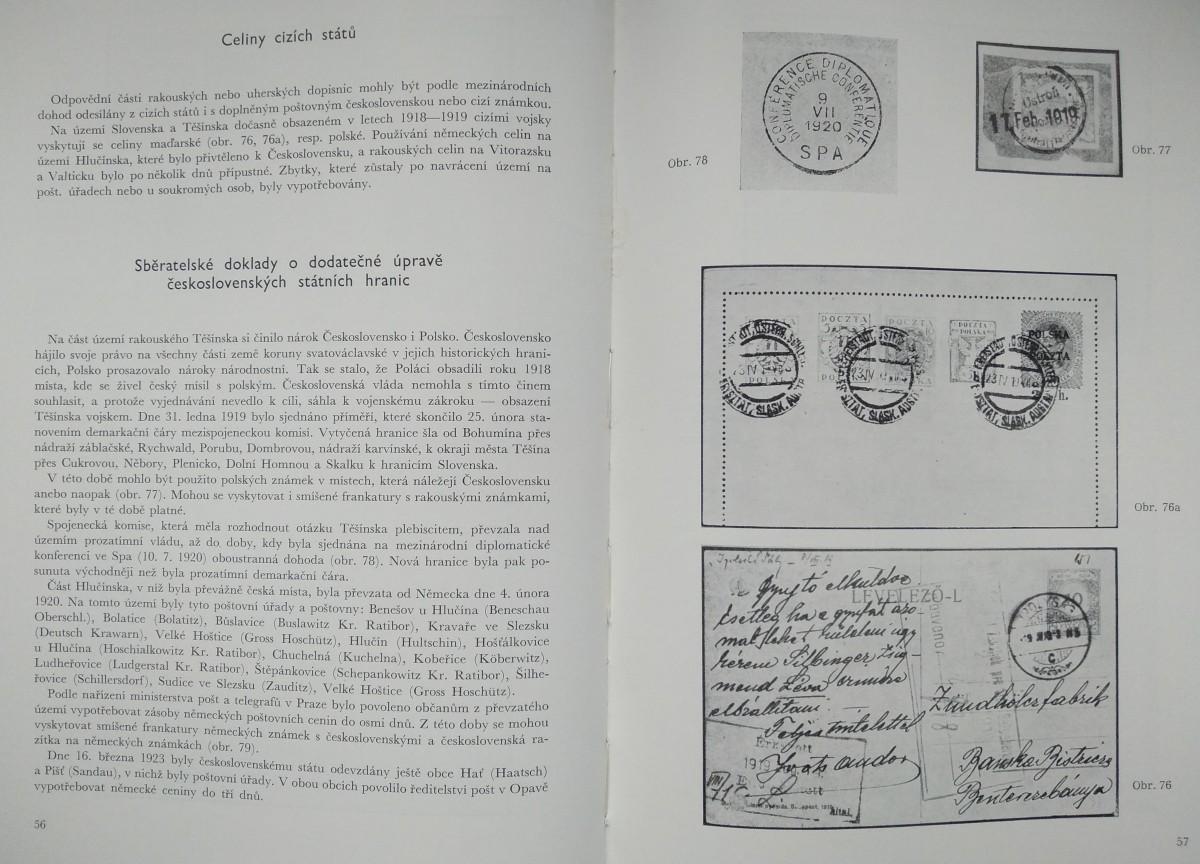 Celiny cizích států
Odpovědní části rakouských nebo uherských dopisnic mohly být podle mezinárodních
dohod odesílány z cizích států i s doplněným poštovným československou nebo cizí známkou.
Na území Slovenska a Těšínska dočasně obsazeném v letech 1918—1919 cizími vojsky
vyskytují se celiny maďarské (obr. 76, 76a), resp. polské. Používání německých celin na
území Hlučínska, které bylo přivtěleno k Československu, a rakouských celin na Vitorazsku
a Valticku bylo po několik dnů přípustné. Zbytky, které zůstaly po navrácení území na
pošt. úřadech nebo u soukromých osob, byly vypotřebovány.
Sběratelské doklady o dodatečné úpravě
československých státních hranic
Na část území rakouského Těšínska si činilo nárok Československo i Polsko. Československo
hájilo svoje právo na všechny části země koruny svatováclavské v jejich historických hrani-
cích, Polsko prosazovalo nároky národnostní. Tak se stalo, že Poláci obsadili roku 1918
místa, kde se živel český mísil s polským. Československá vláda nemohla s tímto činem
souhlasit, a protože vyjednávání nevedlo k cíli, sáhla k vojenskému zákroku — obsazení
Těšínska vojskem. Dne 31. ledna 1919 bylo sjednáno příměří, které skončilo 25. února sta-
novením demarkační čáry mezispojeneckou komisí. Vytyčená hranice šla od Bohumína přes
nádraží záblačské, Rychwald, Porubu, Dombrovou, nádraží karvinské, k okraji města Těšína
přes Cukrovou, Něbory, Plenicko, Dolní Homnou a Skalku k hranicím Slovenska.
V této době mohlo být použito polských známek v místech, která náležejí Československu
anebo naopak (obr. 77). Mohou se vyskytovat i smíšené frankatury s rakouskými známkami,
které byly v té době platné.
Spojenecká komise, která měla rozhodnout otázku Těšínska plebiscitem, převzala nad
územím prozatímní vládu, až do doby, kdy byla sjednána na mezinárodní diplomatické
konferenci ve Spa (10. 7. 1920) oboustranná dohoda (obr. 78). Nová hranice byla pak po-
sunuta východněji než byla prozatímní demarkační čára.
Část Hlučínska, v níž byla převážně česká místa, byla převzata od Německa dne 4. února
1920. Na tomto území byly tyto poštovní úřady a poštovny: Benešov u Hlučína (Beneschau
Oberschl.), Bolatice (Bolatitz), Bůslavice (Buslawitz Kr. Ratibor), Kravaře ve Slezsku
(Deutsch Krawarn), Velké Hoštice (Gross Hoschütz), Hlučín (Hultschin), Hošťálkovice
u Hlučína (Hoschialkowitz Kr. Ratibor), Chuchelná (Kuchelna), Kobeřice (Köberwitz),
Ludheřovice (Ludgerstal Kr. Ratibor), Štěpánkovice (Schepankowitz Kr. Ratibor), Šilhe-
řovice (Schillersdorf), Sudice ve Slezsku (Zauditz), Velké Hoštice (Gross Hoschütz).
Podle nařízení ministerstva pošt a telegrafů v Praze bylo povoleno občanům z převzatého
území vypotřebovat zásoby německých poštovních cenin do osmi dnů. Z této doby se mohou
vyskytovat smíšené frankatury německých známek s československými a československá ra-
zítka na německých známkách (obr. 79).
Dne 16. března 1923 byly československému státu odevzdány ještě obce Hať (Haatsch)
a Píšť (Sandau), v nichž byly poštovní úřady. V obou obcích povolilo ředitelství pošt v Opavě
vypotřebovat německé ceniny do tří dnů.
56
CONFERENCE DIPLOMATIQUE
DIPLOMATISCHE CONFERENTIE
9
VII
1920
SPA
Obr. 78
17. Feb. 1919
Obr. 77
POCZTA
POLSKA
POCZTA
POLSKA
POLSKA
POCZTA
Obr. 76a
LEVELEZŐ-L
Zündhölzfabrik
Banska Bistrica
Obr. 76
57